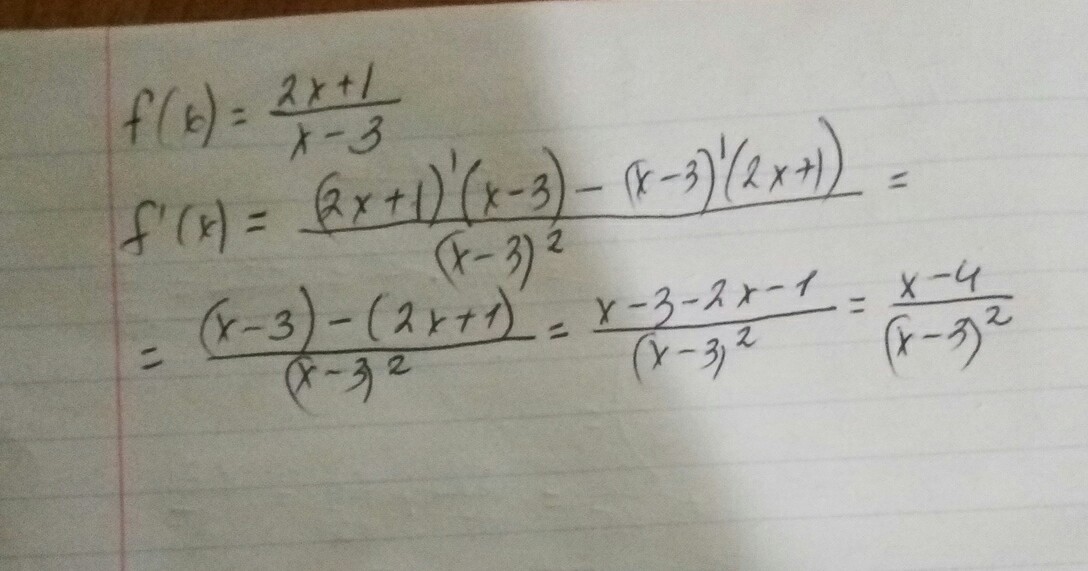 f(x) = (2x+1)/(x-3)
f'(x) = ((2x+1)'(x-3) - (x-3)'(2x+1))/(x-3)² =
= ((x-3) - (2x+1))/(x-3)² = (x-3-2x-1)/(x-3)² = (x-4)/(x-3)²